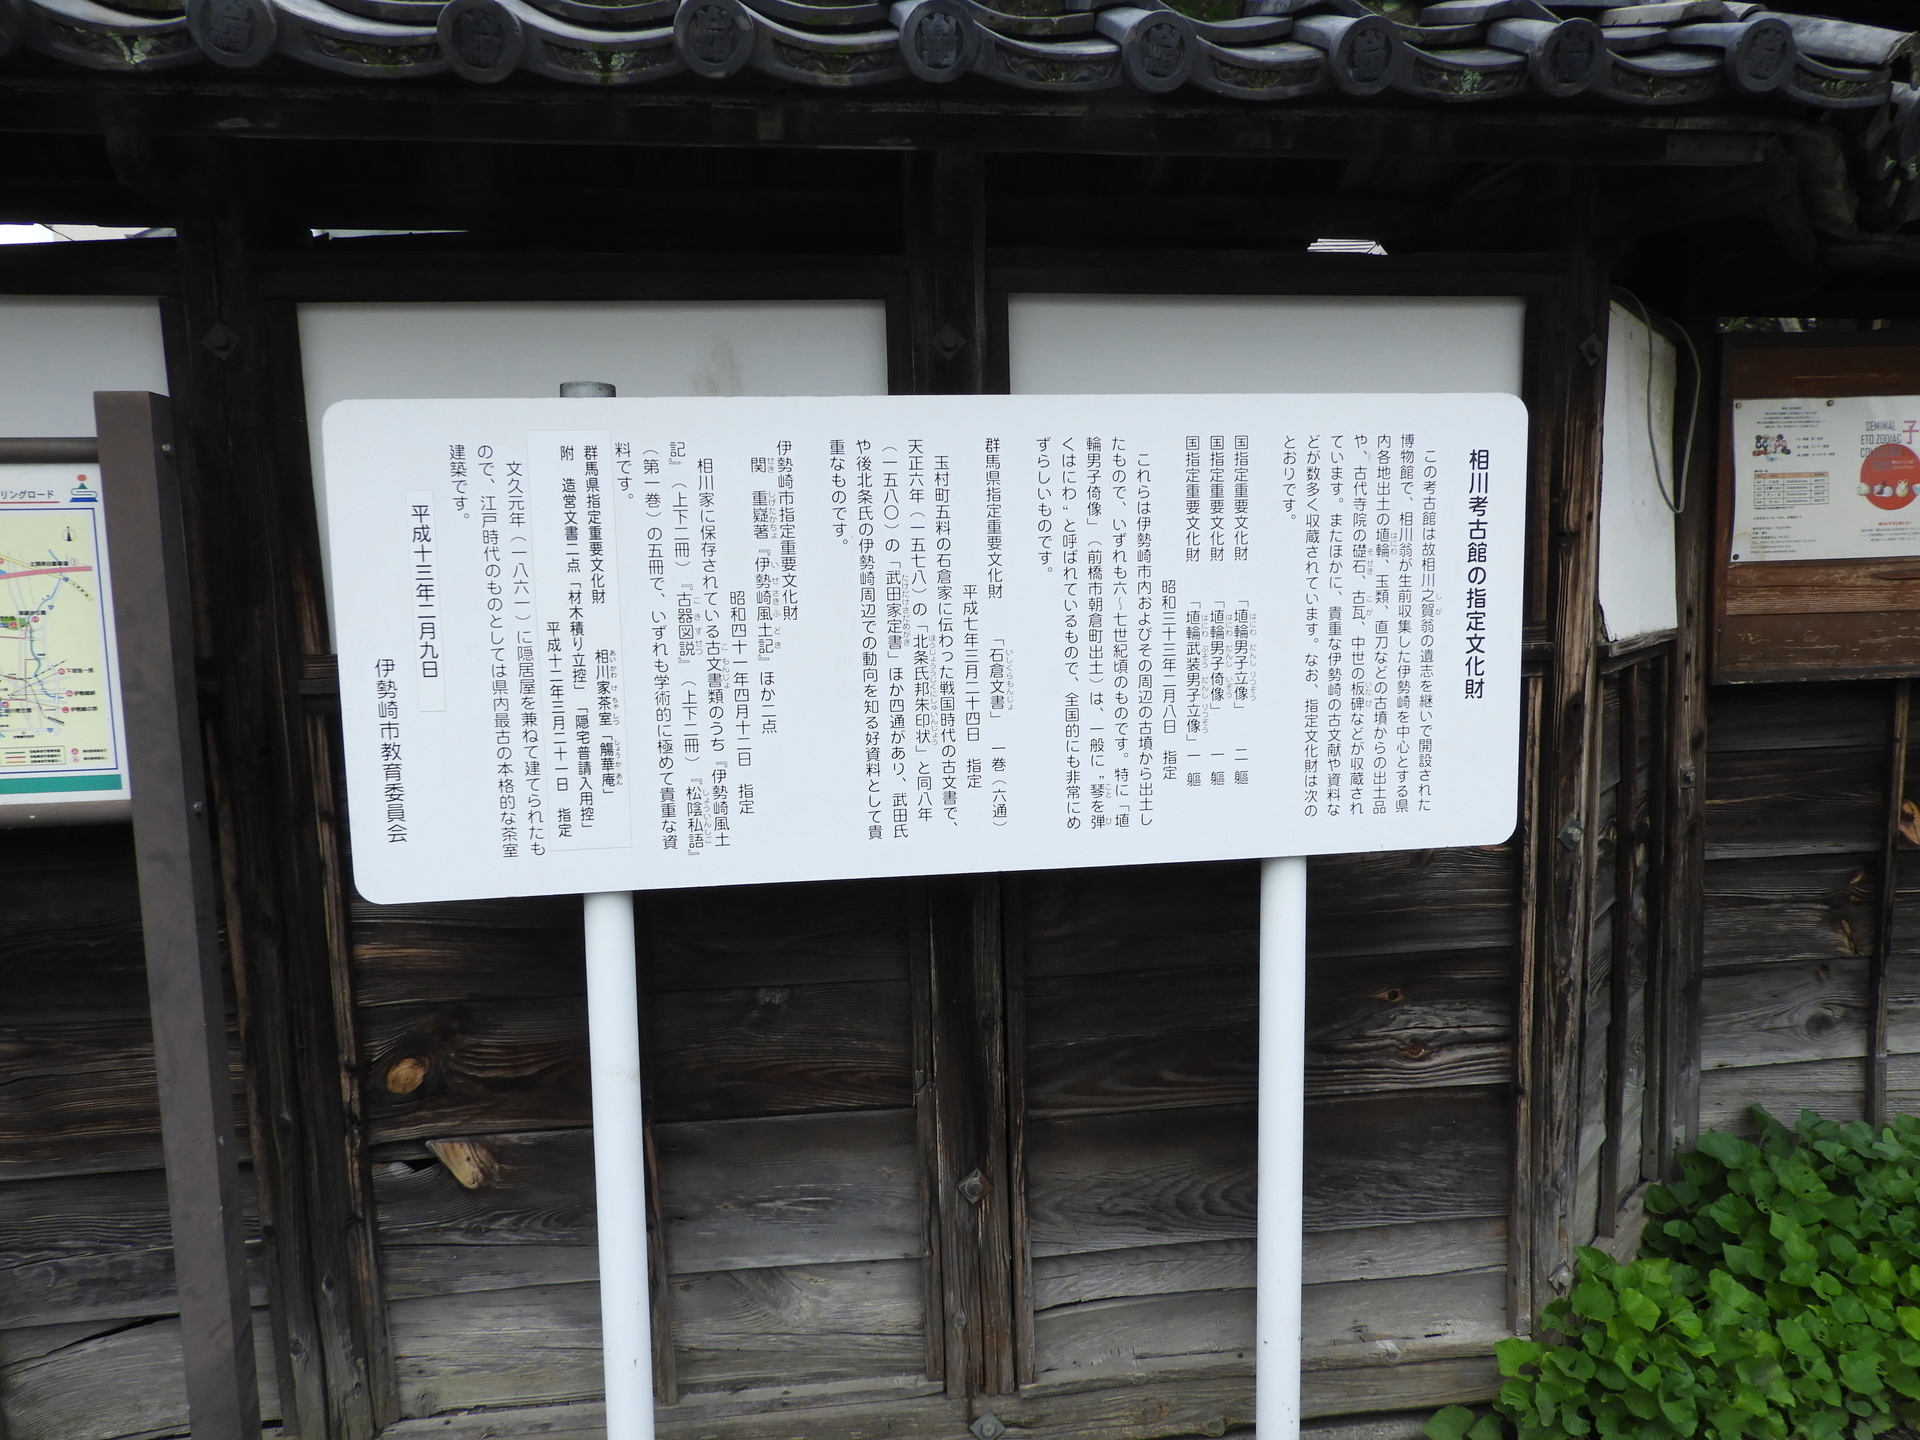 相川考古館の指定文化財
この考古館は故相川之賀翁の遺志を継いで開設された
博物館で、相川翁が生前収集した伊勢崎を中心とする県
内各地出土の埴輪、玉類、直刀などの古墳からの出土品
や、古代寺院の礎石、古瓦、中世の板碑などが収蔵され
ています。またほかに、貴重な伊勢崎の古文献や資料な
どが数多く収蔵されています。なお、指定文化財は次の
とおりです。
国指定重要文化財 「埴輪男子立像」 二軀
国指定重要文化財 「埴輪男子倚像」 一軀
国指定重要文化財 「埴輪武装男子立像」 一軀
昭和三十三年二月八日 指定
これらは伊勢崎市内およびその周辺の古墳から出土し
たもので、いずれも六～七世紀頃のものです。特に「埴
輪男子倚像」（前橋市朝倉町出土）は、一般に〝琴を弾
くはにわ〟と呼ばれているもので、全国的にも非常にめ
ずらしいものです。
群馬県指定重要文化財 「石倉文書」 一巻（六通）
平成七年三月二十四日 指定
玉村町五料の石倉家に伝わった戦国時代の古文書で、
天正六年（一五七八）の「北条氏邦朱印状」と同八年
（一五八〇）の「武田家定書」ほか四通があり、武田氏
や後北条氏の伊勢崎周辺での動向を知る好資料として貴
重なものです。
伊勢崎市指定重要文化財
関 重疑著『伊勢崎風土記』ほか二点
昭和四十一年四月十二日 指定
相川家に保存されている古文書類のうち『伊勢崎風土
記』（上下二冊）『古器図説』（上下二冊）『松陰私語』
（第一巻）の五冊で、いずれも学術的に極めて貴重な資
料です。
群馬県指定重要文化財 相川家茶室「觴華庵」
附 造営文書二点「材木積り立控」「隠宅普請入用控」
平成十二年三月二十一日 指定
文久元年（一八六一）に隠居屋を兼ねて建てられたも
ので、江戸時代のものとしては県内最古の本格的な茶室
建築です。
平成十三年二月九日
伊勢崎市教育委員会
リングロード
SEMIMAL
ETO ZODIAC
子